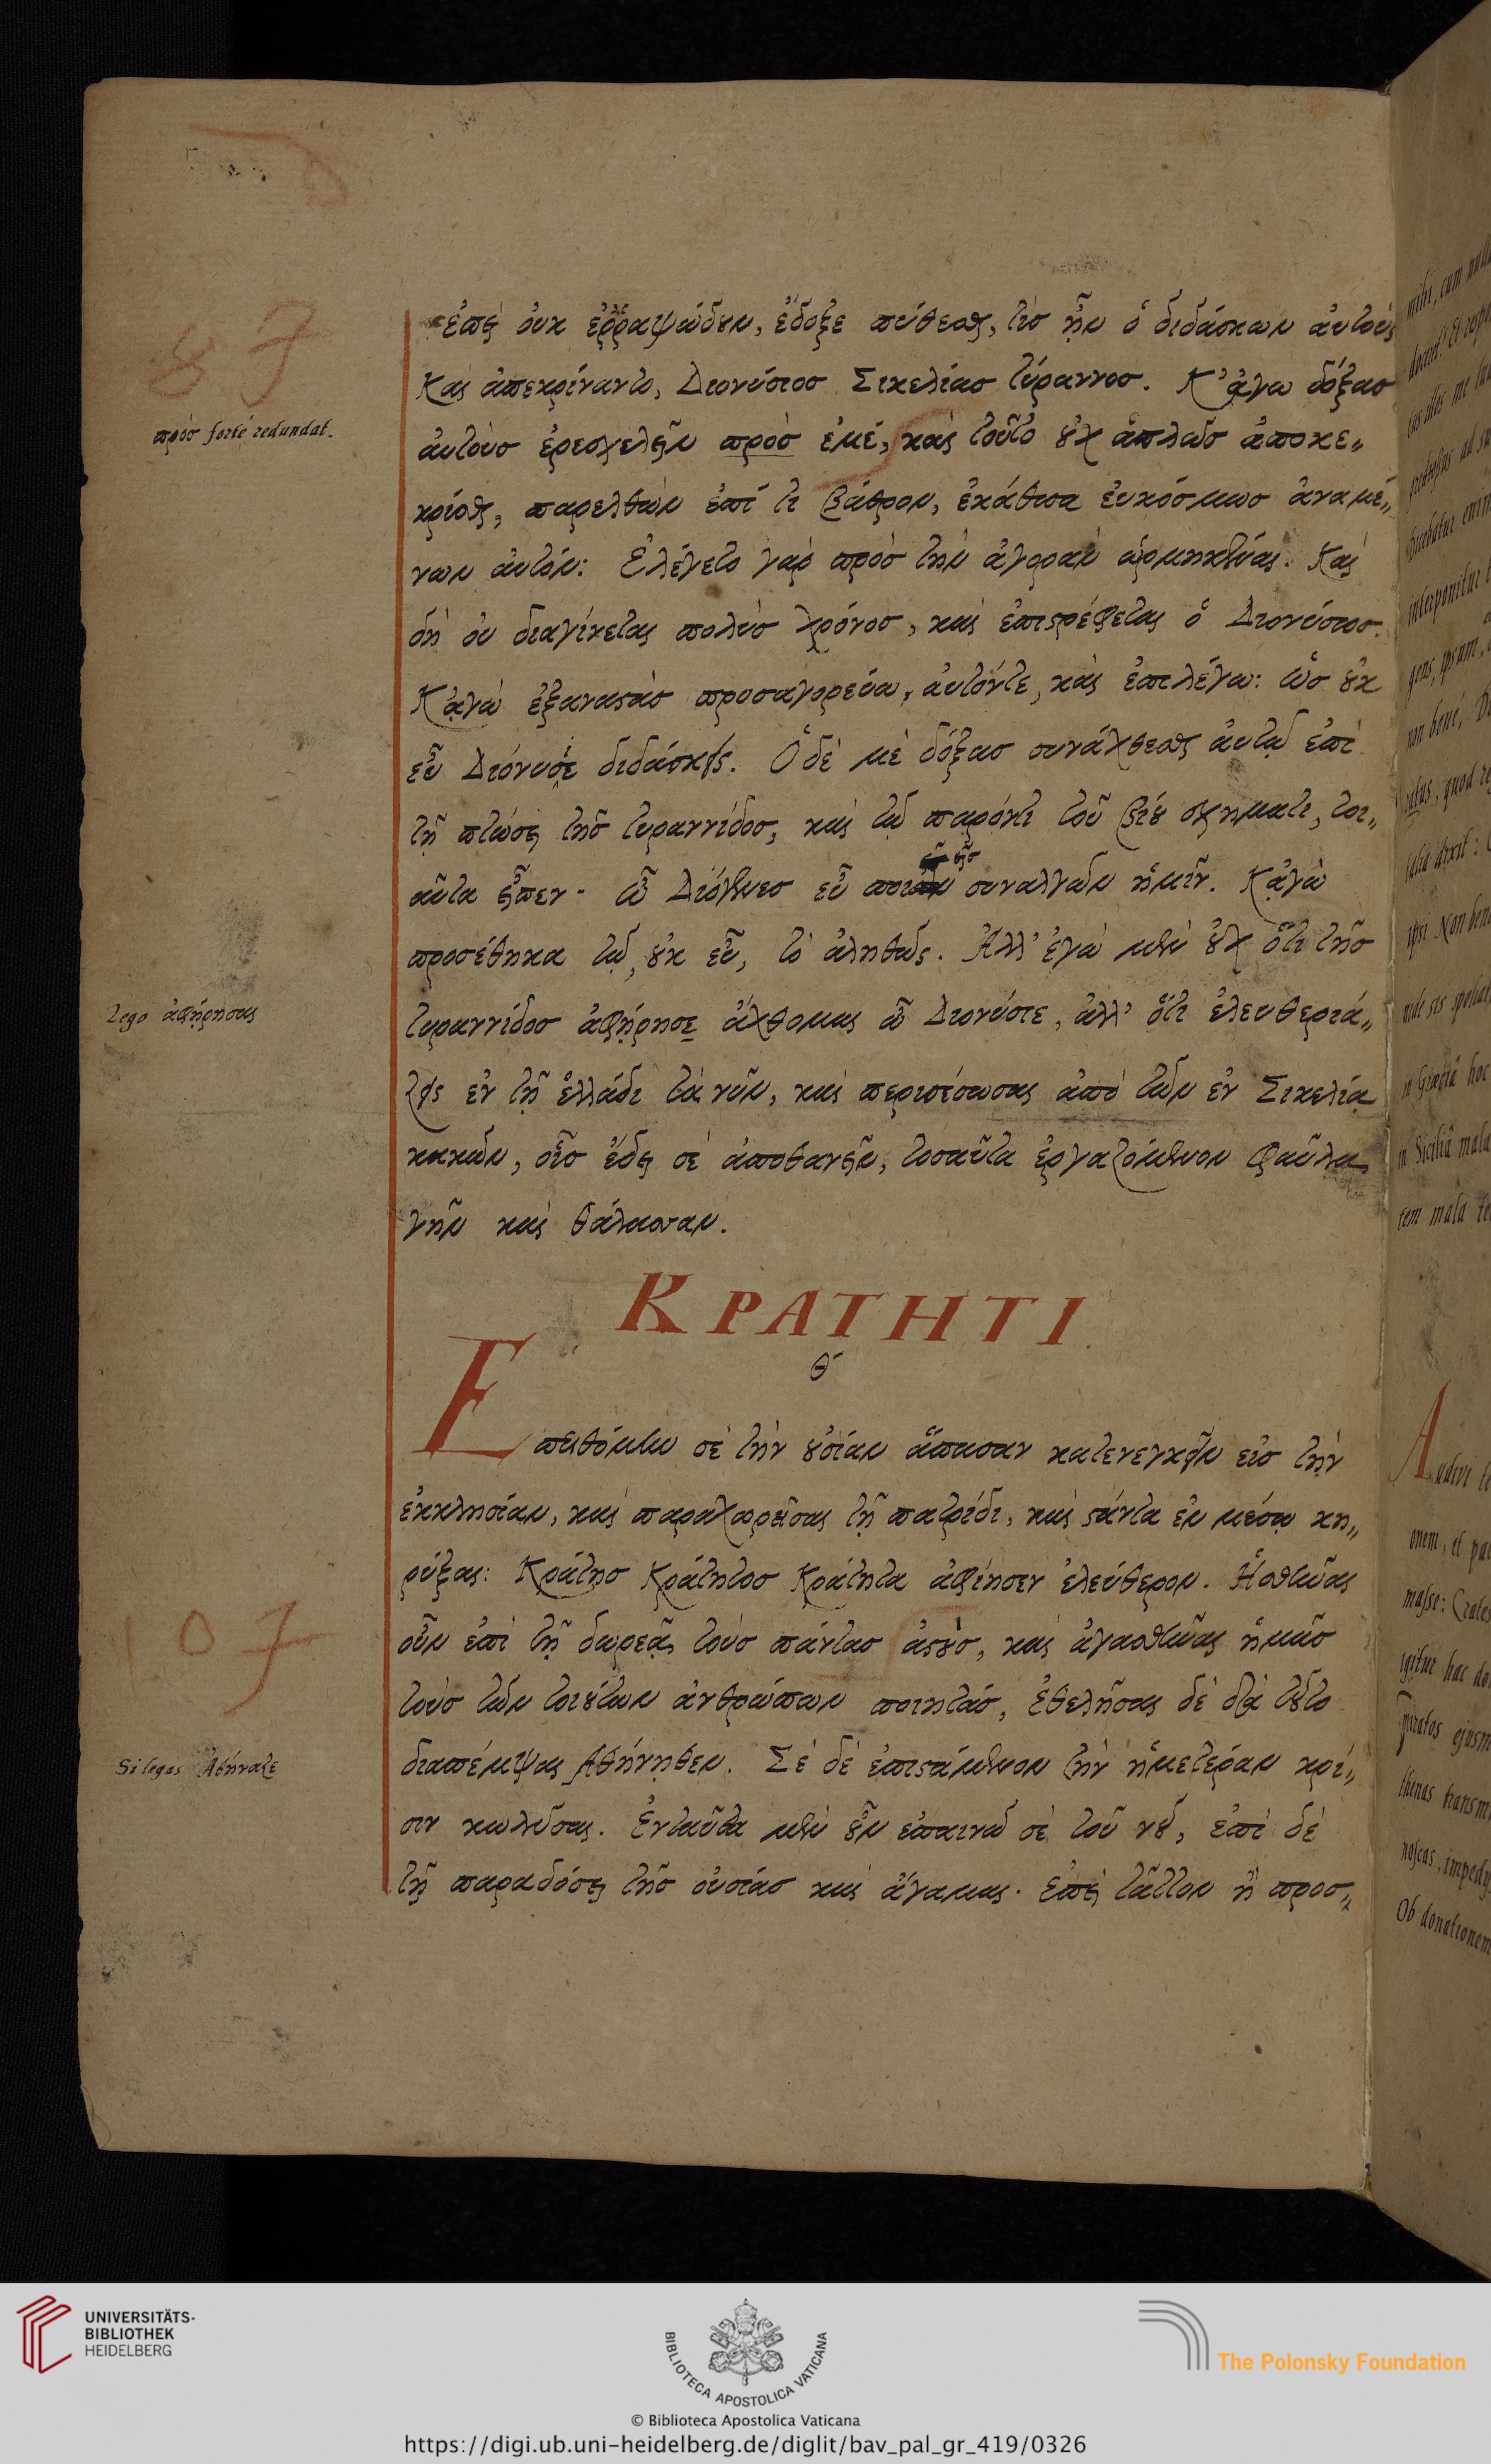 87
ἐπεὶ οὐκ ἐῤῥαψώδουν, ἔδοξε πύθεσθαι, τίσ ἦν ὁ διδάσκων ἀυτοὺς
Καὶ ἀπεκρίναντο, Διονύσιοσ Σικελίασ τύραννοσ. Κ'ἀγω δόξασ
πρὸσ forte redundat.
ἀυτοὺσ ἐρεσχελεῖν πρὸσ ἐμέ, καὶ τοῦτο οὐχ ἁπλῶσ ἀποκε„
κρίσθαι, παρελθὼν ἐπί τι βάθρον, ἐκάθισα ἐυκόσμωσ ἀναμέ„
νων ἀυτόν: Ἐλέγετο γὰρ πρὸσ τὴν ἀγορὰν ὡρμηκέναι. Καὶ
δὴ ου διαγίνεται πολὺσ χρόνοσ, καὶ ἐπιστρέφεται ὁ Διονύσιοσ.
Κἀγὼ ἐξαναστὰσ προσαγορεύω, ἀυτόντε, καὶ ἐπιλέγω: ὡσ οὐκ
εὖ Διόνυσιε διδάσκεις. Ὁδὲ μὲ δόξασ συνάχθεσθαι ἀυτῷ ἐπὶ
τῇ πτώσει τῆσ τυραννίδοσ, καὶ τῷ παρόντι τοῦ βίου σχηματι, τοι„
αῦτα εἶπεν. ὦ Διόγενεσ εὖ ποιεῖσ συναλγῶν ἡμῖν. Κἀγὼ
προσέθηκα τῷ, οὐκ εὖ, τὸ ἀληθῶς. Ἀλλ' ἐγὼ μὲν οὐχ ὅτι τῆσ
Lego ἀφῄρησαι
τυραννίδοσ ἀφῄρησε ἄχθομαι ὦ Διονύσιε, ἀλλ' ὅτι ἐλευθεριά„
ζεις ἐν τῇ ἑλλάδι τὰ νῦν, καὶ περισέσωσαι ἀπὸ τῶν ἐν Σικελίᾳ
κακῶν, οἷσ ἔδει σὲ ἀποθανεῖν, τοσαῦτα ἐργαζόμενον φαῦλα
γῆν καὶ θάλασσαν.
ΚΡΑΤΗΤΙ.
θ
Επυθόμην σὲ τὴν οὐσίαν ἅπασαν κατενεγκεῖν εἰσ τὴν
ἐκκλησίαν, καὶ παραχωρεῖσαι τῇ πατρίδι, καὶ στάντα ἐν μέσῳ κη„
ρύξαι: Κράτησ Κράτητοσ Κράτητα ἀφίησιν ἐλεύθερον. Ἡσθῆναι
107
οὖν ἐπὶ τῇ δωρεᾷ τοὺσ πάντασ ἀστοὺσ, καὶ ἀγασθῆναι ἡμᾶσ
τοὺσ τῶν τοιούτων ἀνθρώπων ποιητάσ, ἐθελῆσαι δὲ διὰ τοῦτο
Si legas Ἀθήναζε
διαπέμψαι Ἀθήνηθεν. Σὲ δὲ ἐπιστάμενον τὴν ἡμετέραν κρί„
σιν κωλῦσαι. Ἐνταῦθα μὲν οὖν ἐπαινῶ σὲ τοῦ νοῦ, ἐπὶ δὲ
τῇ παραδόσει τῆσ οὐσίασ καὶ ἄγαμαι. ἐπεὶ τᾶττον ἢ προσ„
UNIVERSITÄTS-
BIBLIOTHEK
HEIDELBERG
BIBLIOTECA APOSTOLICA VATICANA
The Polonsky Foundation
© Biblioteca Apostolica Vaticana
https://digi.ub.uni-heidelberg.de/diglit/bav_pal_gr_419/0326